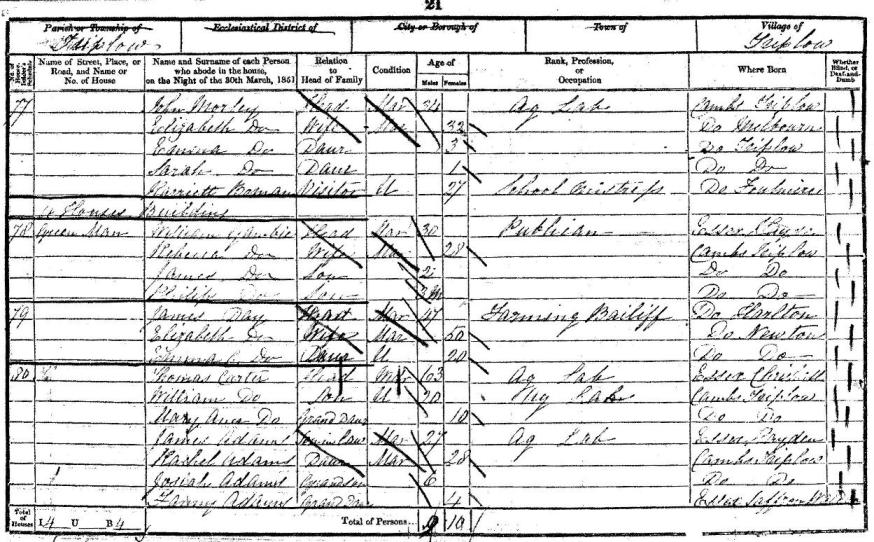 21
Parish or Township of Ecclesiastical District of City or Borough of Town of Village of
Triplow Triplow
No. of House-holder's Schedule Name of Street, Place, or Road, and Name or No. of House Name and Surname of each Person who abode in the house, on the Night of the 30th March, 1851 Relation to Head of Family Condition Age of Males Females Rank, Profession, or Occupation Where Born Whether Blind, or Deaf-and-Dumb
77 John Morley Head Mar 34 Ag Lab Cambs Triplow
Elizabeth Do Wife Mar 32 Do Melbourn
Emma Do Daur 3 Do Triplow
Sarah Do Daur 1 Do Do
Harriett Visitor U 27 School Mistress Do
Houses Building
78 Green Man William Head Mar 30 Publican Essex
Rebecca Do Wife Mar 28 Cambs Triplow
James Do Son 2 Do Do
Philip Do Son Do Do
79 James Day Head Mar 47 Farming Bailiff Do Harlton
Elizabeth Do Wife Mar 50 Do Newton
Emma Do Daur U 20 Do Do
80 Thomas Carter Head 63 Ag Lab Essex
William Do Son U 20 Ag Lab Cambs Triplow
Mary Ann Do Grand Daur 10 Do Do
James Adams Son in Law Mar 27 Ag Lab Essex
Rachel Adams Daur Mar 28 Cambs Triplow
Josiah Adams Grandson 6 Do Do
Fanny Adams Grand Daur 4 Essex Saffron Walden
Total of Houses I 4 U B 4 Total of Persons... 9 10